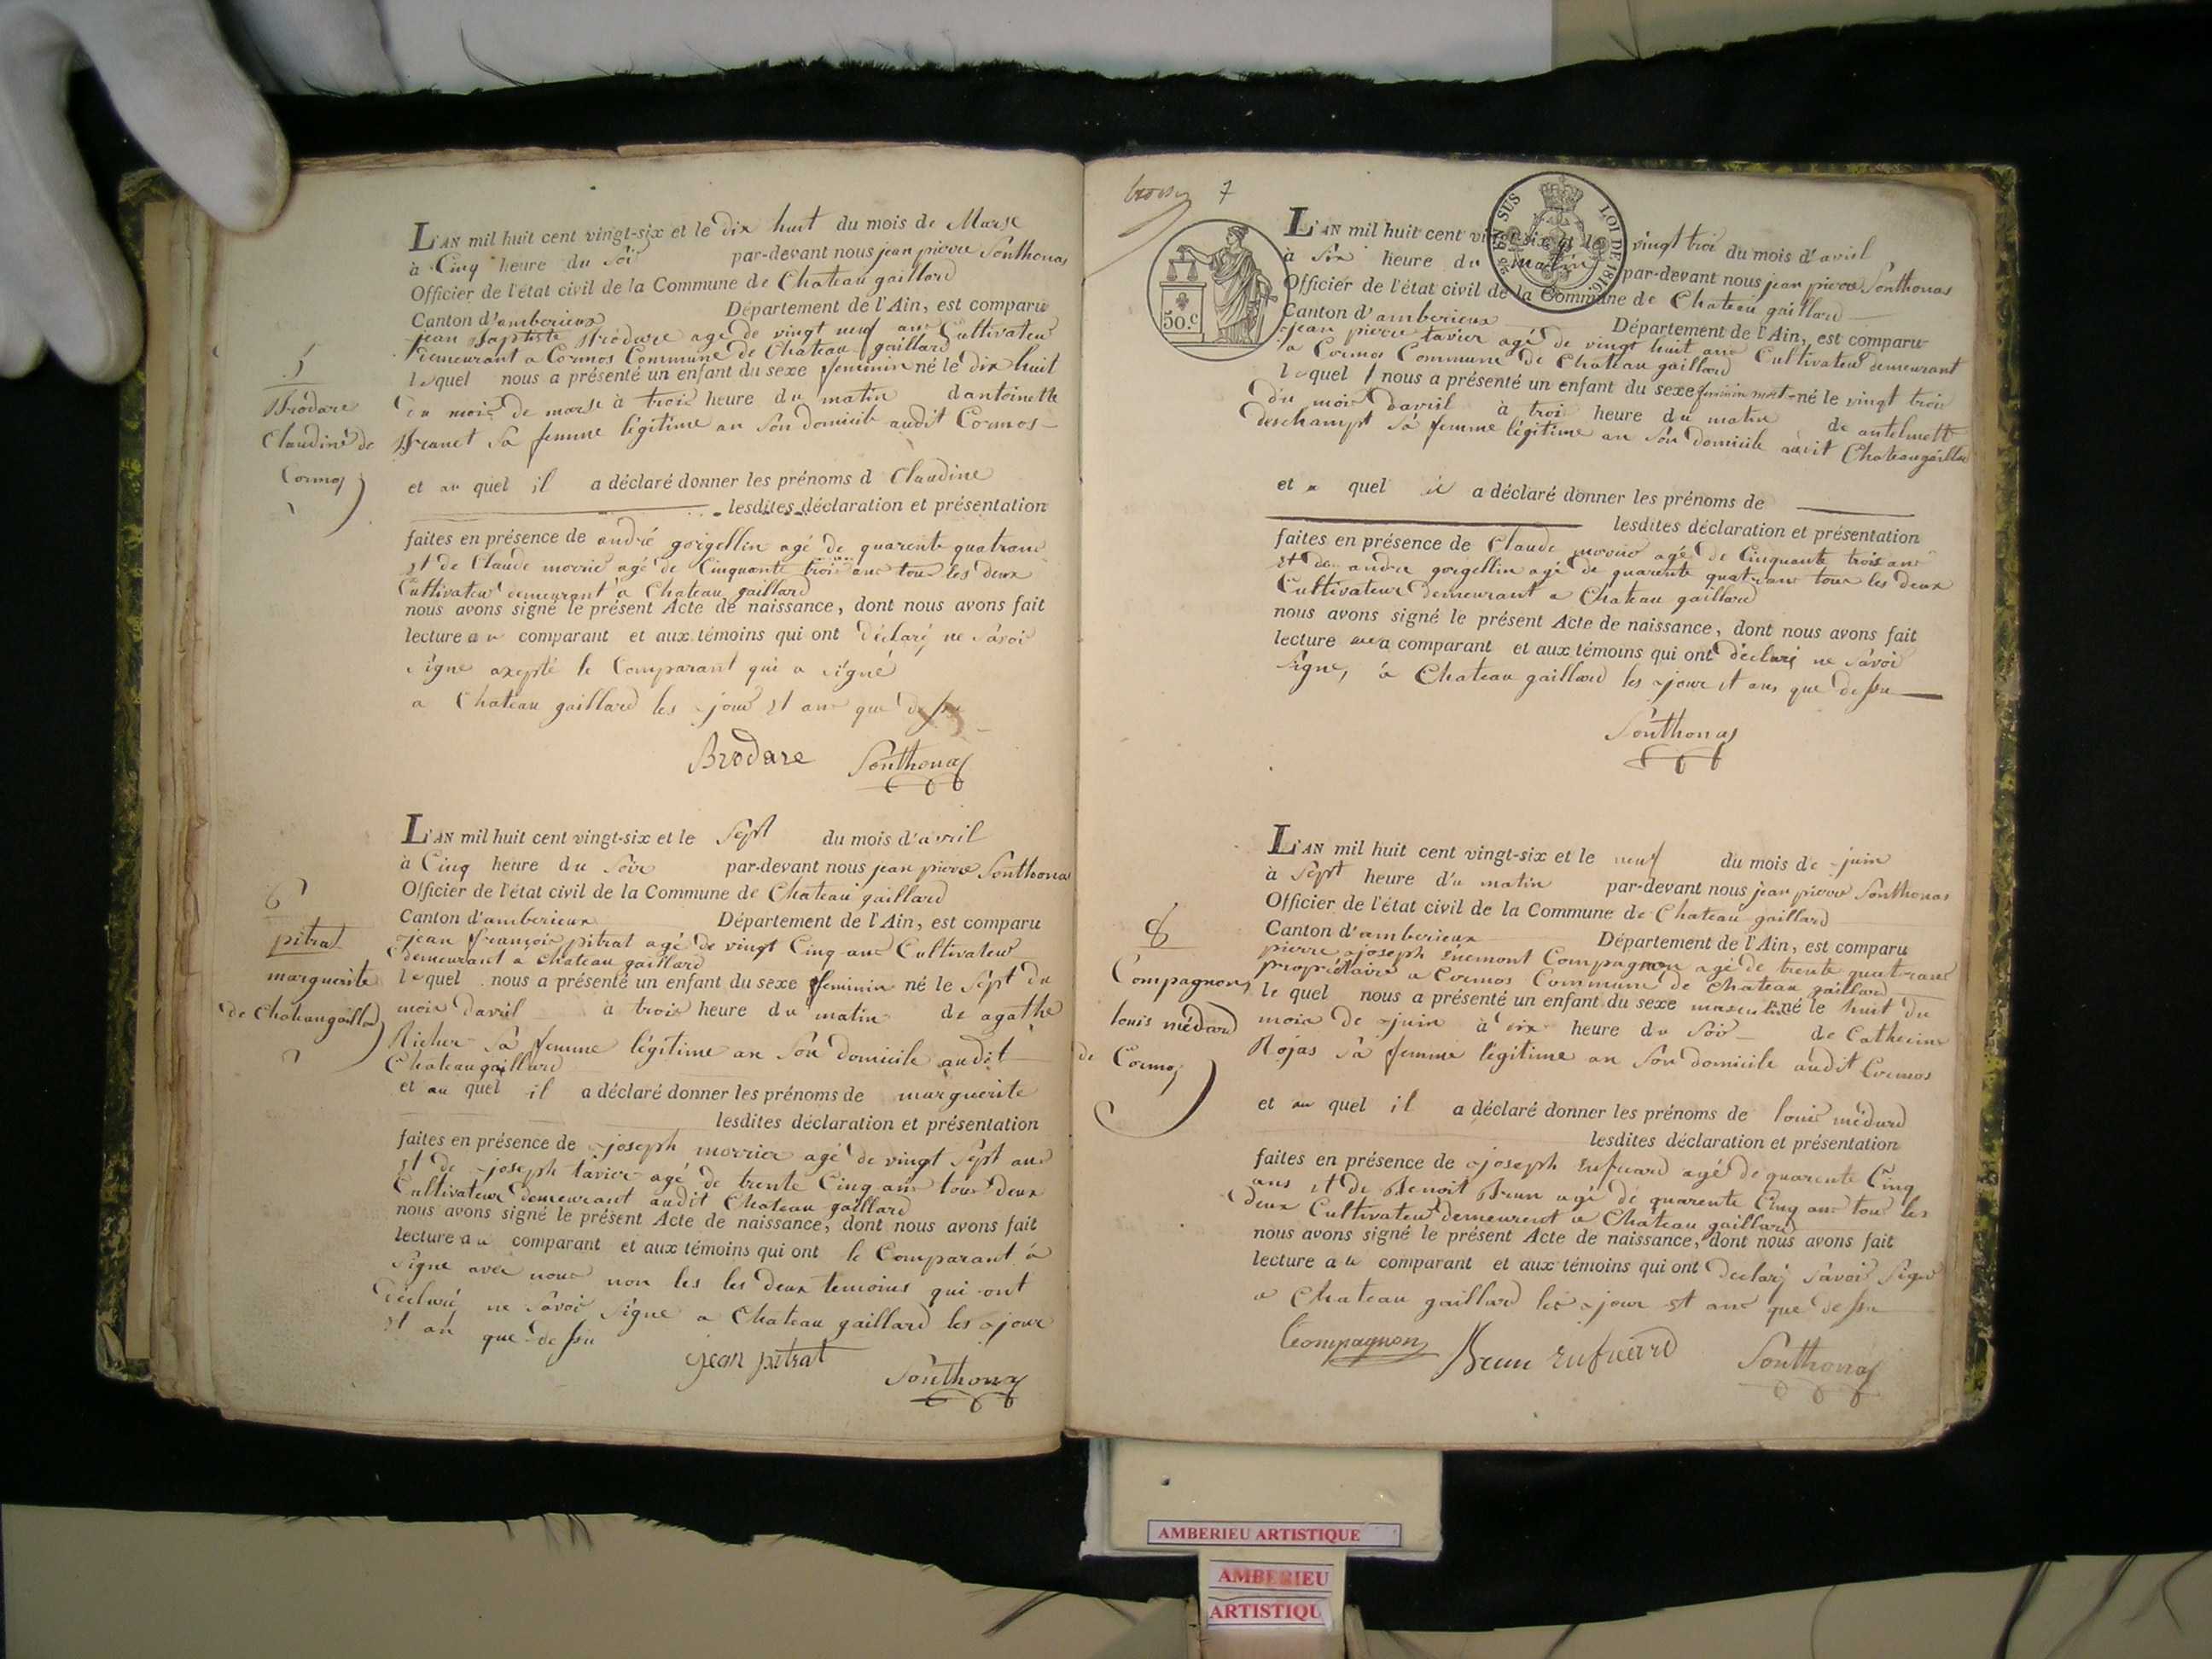 L'AN mil huit cent vingt-six et le dix huit du mois de Marse
à Cinq heure du Soi par-devant nous jean pierre Sonthonas
Officier de l'état civil de la Commune de Chateau gaillard
Canton d'amberieux Département de l'Ain, est comparu
jean Baptiste Brodare agé de vingt neuf ans Cultivateur
demeurant a Cormos Commune de Chateau gaillard
lequel nous a présenté un enfant du sexe feminin né le dix huit
du mois de marse à trois heure du matin dantoinette
sa femme légitime an son domicile audit Cormos
et au quel il a déclaré donner les prénoms d Claudine
lesdites déclaration et présentation
faites en présence de andré gorgellin agé de quarente quatrans
et de Claude morrie agé de Cinquante trois ans tous les deux
Cultivateur demeurant a Chateau gaillard
nous avons signé le présent Acte de naissance, dont nous avons fait
lecture au comparant et aux témoins qui ont déclaré ne Savoi
signe axepté le Comparant qui a signé
a Chateau gaillard les jour et ans que dessu
Brodare Sonthonas
5
Brodare
Claudine de
Cormos
L'AN mil huit cent vingt-six et le Sept du mois d'avril
à Cinq heure du Soir par-devant nous jean pierre Sonthonas
Officier de l'état civil de la Commune de Chateau gaillard
Canton d'amberieux Département de l'Ain, est comparu
jean françois pitrat agé de vingt Cinq ans Cultivateur
demeurant a Chateau gaillard
lequel nous a présenté un enfant du sexe feminin né le Sept du
mois davril à trois heure du matin de agathe
Richer sa femme légitime an son domicile audit
Chateau gaillard
et au quel il a déclaré donner les prénoms de marguerite
lesdites déclaration et présentation
faites en présence de joseph morrier agé de vingt Sept ans
et de joseph tavier agé de trente Cinq ans tous deux
Cultivateur demeurant audit Chateau gaillard
nous avons signé le présent Acte de naissance, dont nous avons fait
lecture au comparant et aux témoins qui ont le Comparant a
signe avec nous non les les deux temoins qui ont
déclaré ne Savoir signe a Chateau gaillard les jour
et an que dessu
jean pitrat Sonthonas
6
pitrat
marguerite
de Chateaugaillard
7
50.c
LOI DE 1816.
L'AN mil huit cent vingt-six et le vingt troi du mois d'avril
à Six heure du matin par-devant nous jean pierre Sonthonas
Officier de l'état civil de la Commune de Chateau gaillard
Canton d'amberieux Département de l'Ain, est comparu
jean pierre tavier agé de vingt huit ans Cultivateur demeurant
a Cormos Commune de Chateau gaillard
lequel nous a présenté un enfant du sexe feminin mort né le vingt trois
du mois davril à trois heure du matin de antelmette
deschampt sa femme légitime an son domicile audit Chateaugaillard
et a quel il a déclaré donner les prénoms de
lesdites déclaration et présentation
faites en présence de Claude morrier agé de Cinquante trois ans
et de andre gorgellin agé de quarente quatrans tous les deux
Cultivateur demeurant a Chateau gaillard
nous avons signé le présent Acte de naissance, dont nous avons fait
lecture au comparant et aux témoins qui ont déclaré ne Savoi
signe, a Chateau gaillard les jour et ans que dessu
Sonthonas
L'AN mil huit cent vingt-six et le neuf du mois de juin
à Sept heure du matin par-devant nous jean pierre Sonthonas
Officier de l'état civil de la Commune de Chateau gaillard
Canton d'amberieux Département de l'Ain, est comparu
pierre joseph Compagnon agé de trente quatrans
propriétaire a Cormos Commune de Chateau gaillard
le quel nous a présenté un enfant du sexe masculin né le huit du
mois de juin à six heure du Soir de Catherine
Rojas sa femme légitime an son domicile audit Cormos
et au quel il a déclaré donner les prénoms de louis médard
lesdites déclaration et présentation
faites en présence de joseph rufieard agé de quarente Cinq
ans et de Benoit Brun agé de quarente Cinq ans tous les
deux Cultivateur demeurent a Chateau gaillard
nous avons signé le présent Acte de naissance, dont nous avons fait
lecture au comparant et aux témoins qui ont declaré savoir signe
a Chateau gaillard les jour et ans que dessu
Compagnon Brun rufieard Sonthonas
8
Compagnon
louis médard
de Cormos
AMBERIEU ARTISTIQUE
AMBERIEU
ARTISTIQU